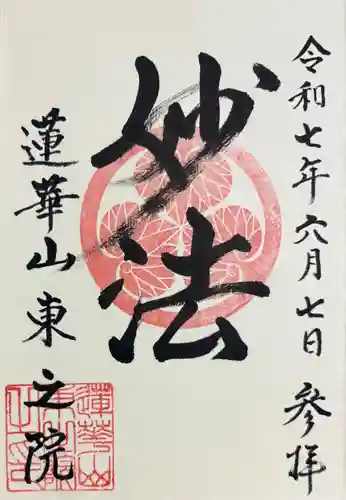 令和七年六月七日 参拝
妙法
蓮華山東之院